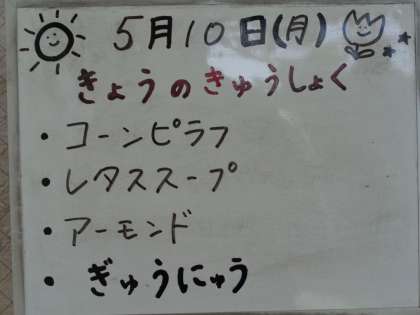 5月10日(月)
きょうのきゅうしょく
・コーンピラフ
・レタススープ
・アーモンド
・ぎゅうにゅう